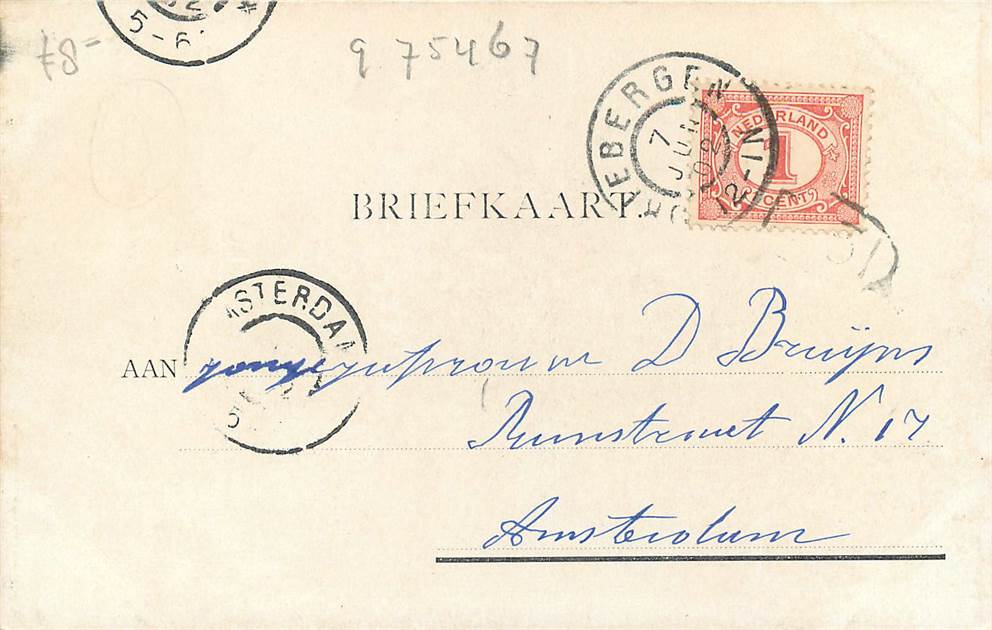 5-6
78=
9 75467
HOLTEBERGEN
7 JUN 02
12-1N
NEDERLAND
1
CENT
BRIEFKAART.
AMSTERDAM
AAN jongejufvrouw D Bruijns
Runstraat N. 17
Amsterdam